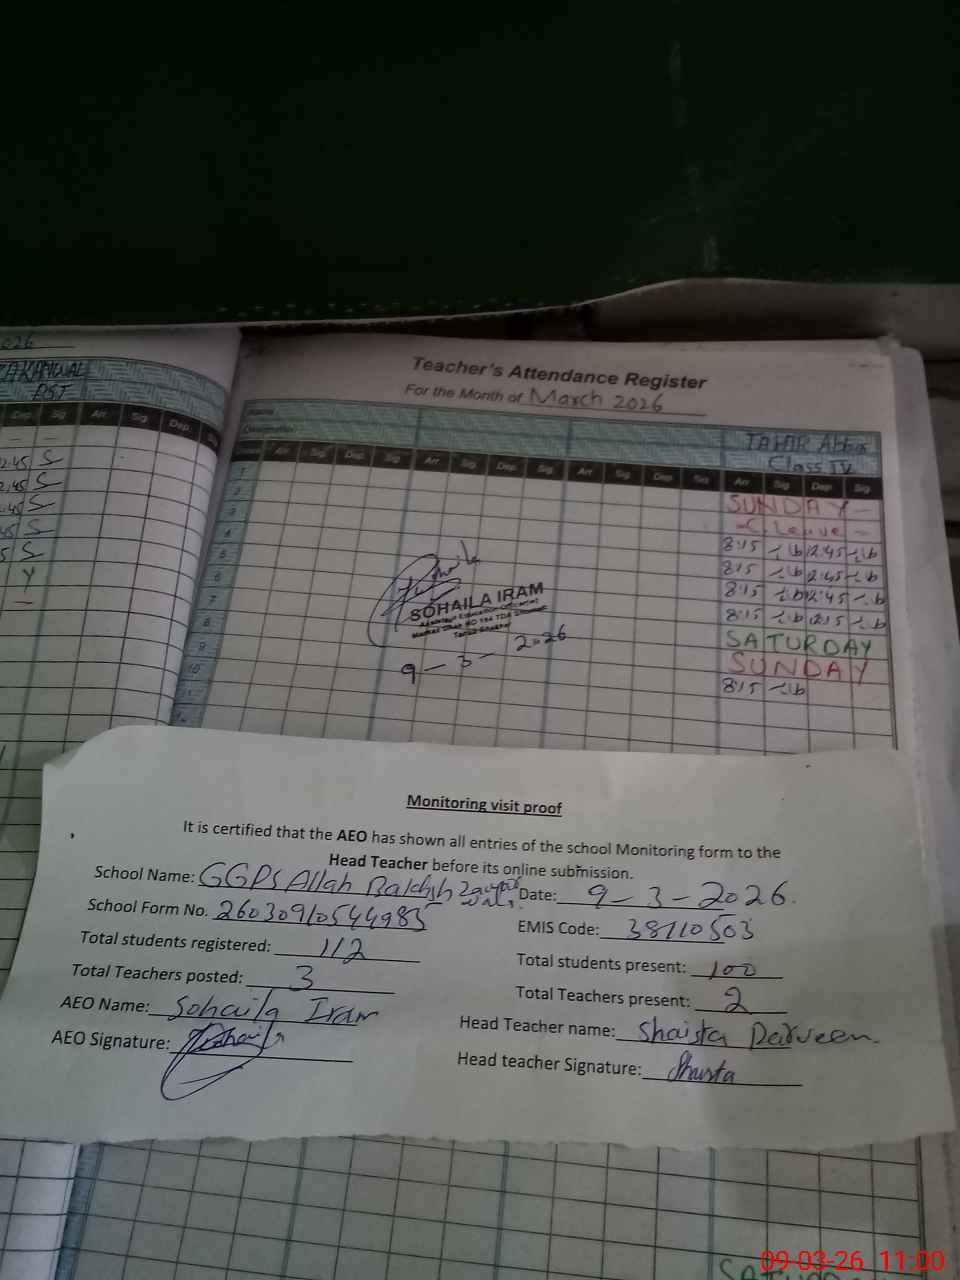 2026
KANWAL
PST
Dep. Sig Arr. Sig Dep. Sig
2:45 S
2:45 S
:45 S
45 S
5 S
Y
Teacher's Attendance Register
For the Month of March 2026
Name
Designation
TAHIR Abbas
Class IV
Arr Sig Dep. Sig Arr Sig Dep. Sig Arr Sig Dep. Sig Arr Sig Dep. Sig
1 SUNDAY –
2 – C. Leave –
3 8:15 12:45
4 8:15 12:45
5 8:15 12:45
6 8:15 12:15
7 SATURDAY
8 SUNDAY
9 8:15
10
11
SOHAILA IRAM
Assistant Education Officer
9 – 3 – 2026
Monitoring visit proof
It is certified that the AEO has shown all entries of the school Monitoring form to the
Head Teacher before its online submission.
School Name: GGPS Allah Bakhsh Date: 9 – 3 – 2026.
School Form No. 26030910544985 EMIS Code: 38110503
Total students registered: 112 Total students present: 100
Total Teachers posted: 3 Total Teachers present: 2
AEO Name: Sohaila Iram Head Teacher name: Shaista Parveen.
AEO Signature: Head teacher Signature: Shaista
09-03-26 11:00